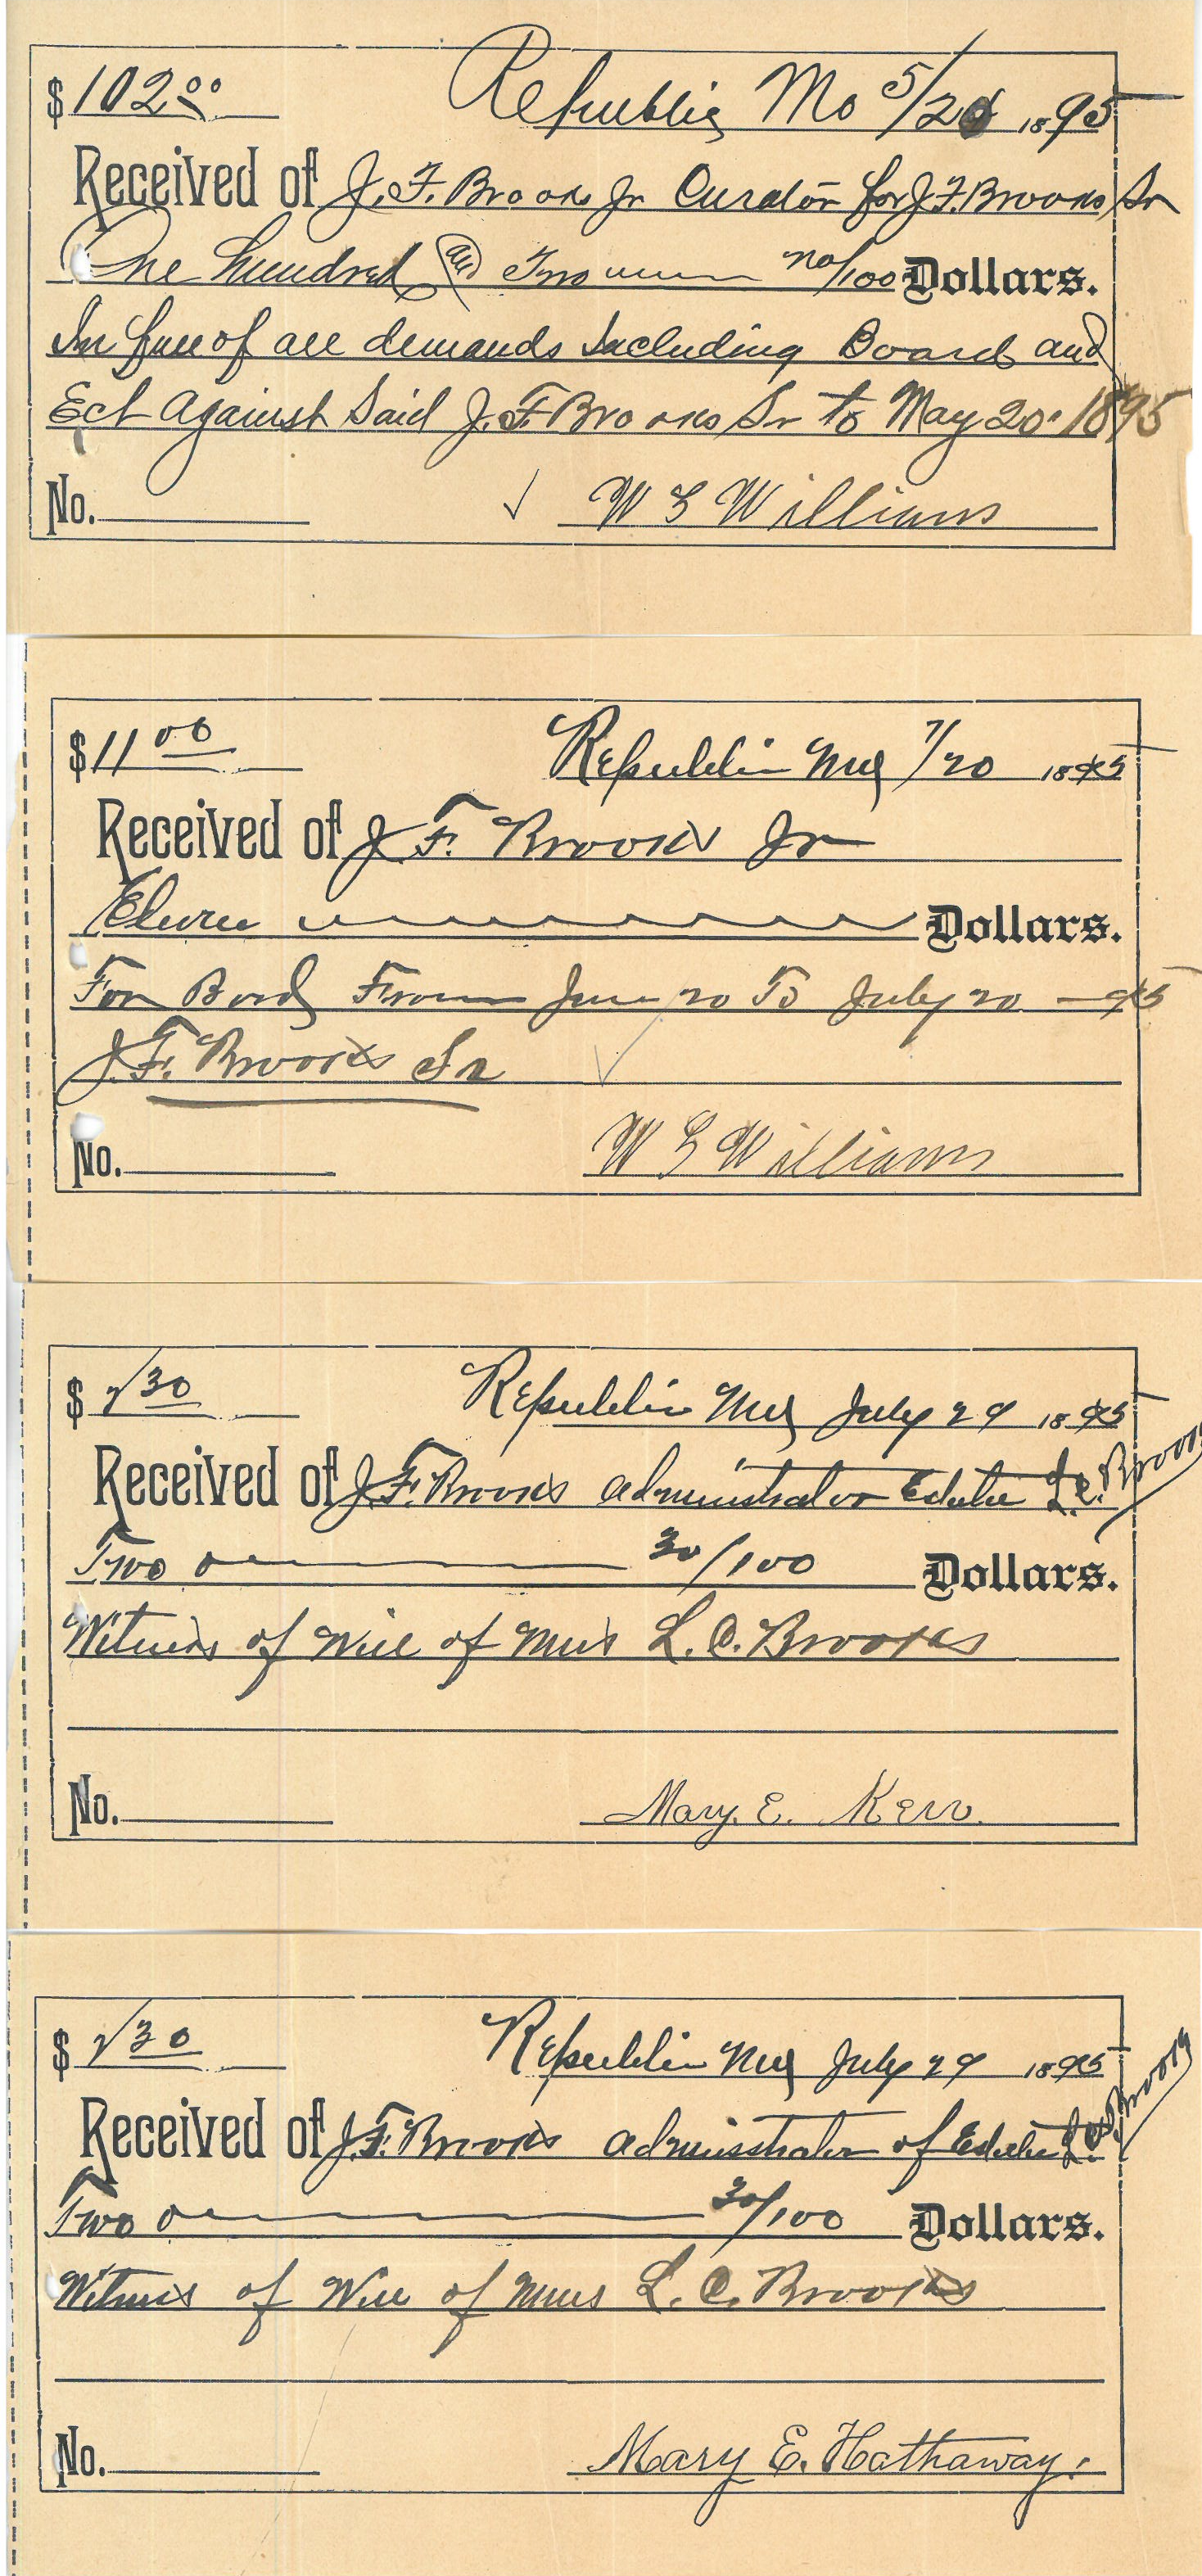 $ 102.00 Republic Mo 5/20 1895
Received of J. F. Brooks Jr Curator for J F. Brooks Sr
One hundred and Two no/100 Dollars.
In full of all demands Including Board and
Ect Against Said J. F. Brooks Sr to May 20. 1895
No. W G Williams
$ 11 00 Republic Mo 7/20 1895
Received of J. F. Brooks Jr
Eleven Dollars.
For Bord From June 20 To July 20 - 95
J. F. Brooks Sr
No. W G Williams
$ 2 30 Republic Mo July 29 1895
Received of J. F. Brooks administrator Estate L. C. Brooks
Two 30/100 Dollars.
Witness of Will of Mrs L. C. Brooks
No. Mary. E. Kerr.
$ 2 30 Republic Mo July 29 1895
Received of J. F. Brooks administrator of Estate L. C. Brooks
Two 30/100 Dollars.
Witness of Will of Mrs L. C. Brooks
No. Mary E. Hathaway.